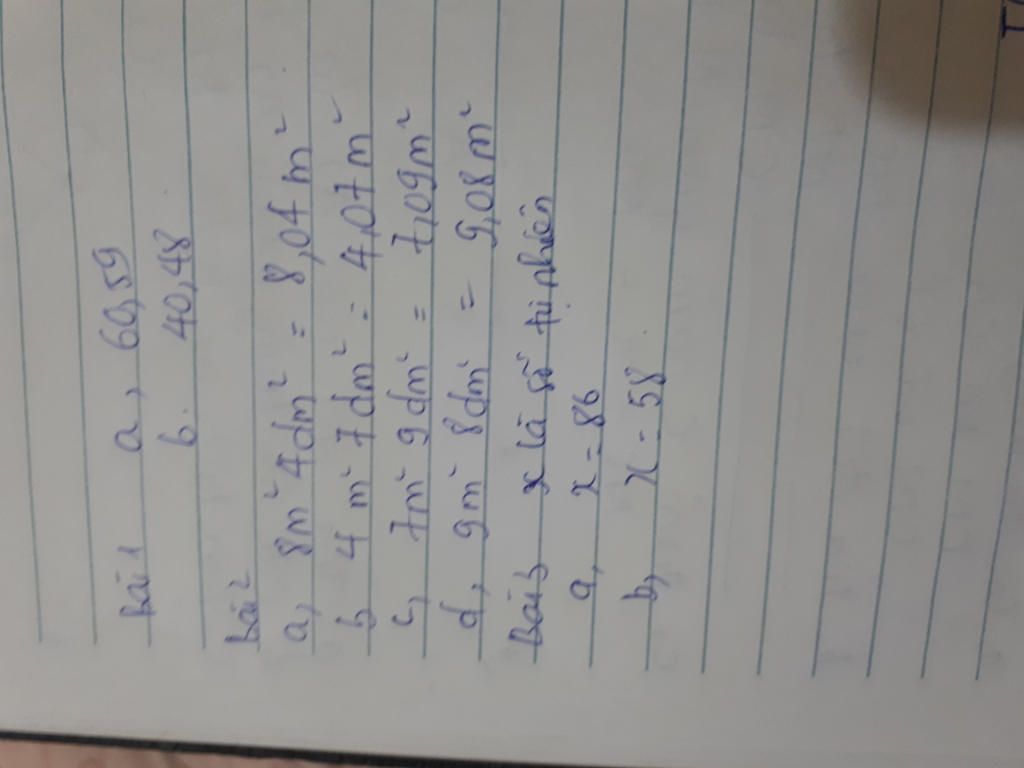 Bài 1 a, 60,59
b. 40,48
Bài 2
a, 8m² 4dm² = 8,04 m²
b, 4 m² 7 dm² = 4,07 m²
c, 7m² 9 dm² = 7,09m²
d, 9m² 8dm² = 9,08 m²
Bài 3 x là số tự nhiên
a, x = 86
b, x = 58